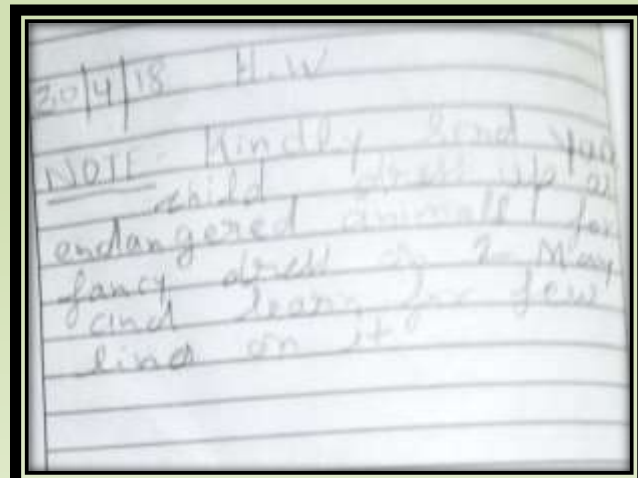 20/4/18 H.W
NOTE - Kindly send your
child dress up as
endangered animal for
fancy dress on 2 May
and learn few
lines on it